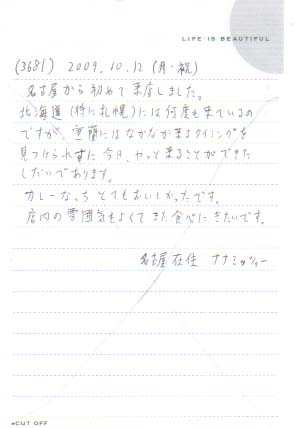 LIFE IS BEAUTIFUL
(3681) 2009.10.12 (月・祝)
名古屋から初めて来店しました。
北海道(特に札幌)には何度も来ているの
ですが、室蘭にはなかなか来るタイミングを
見つけられずに今日、やっと来ることができた
しだいであります。
カレーなっち とてもおいしかったです。
店内の雰囲気もよくて また食べにきたいです。
名古屋在住 ナナミッツィー
CUT OFF